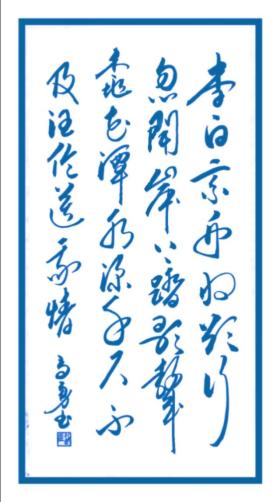 李白乘舟将欲行
忽闻岸上踏歌聲
桃花潭水深千尺不
及汪伦送我情 高书